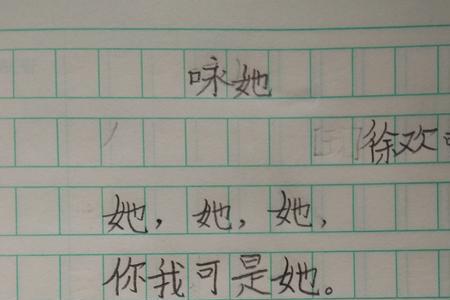 咏她
徐欢
她，她，她，
你我可是她。